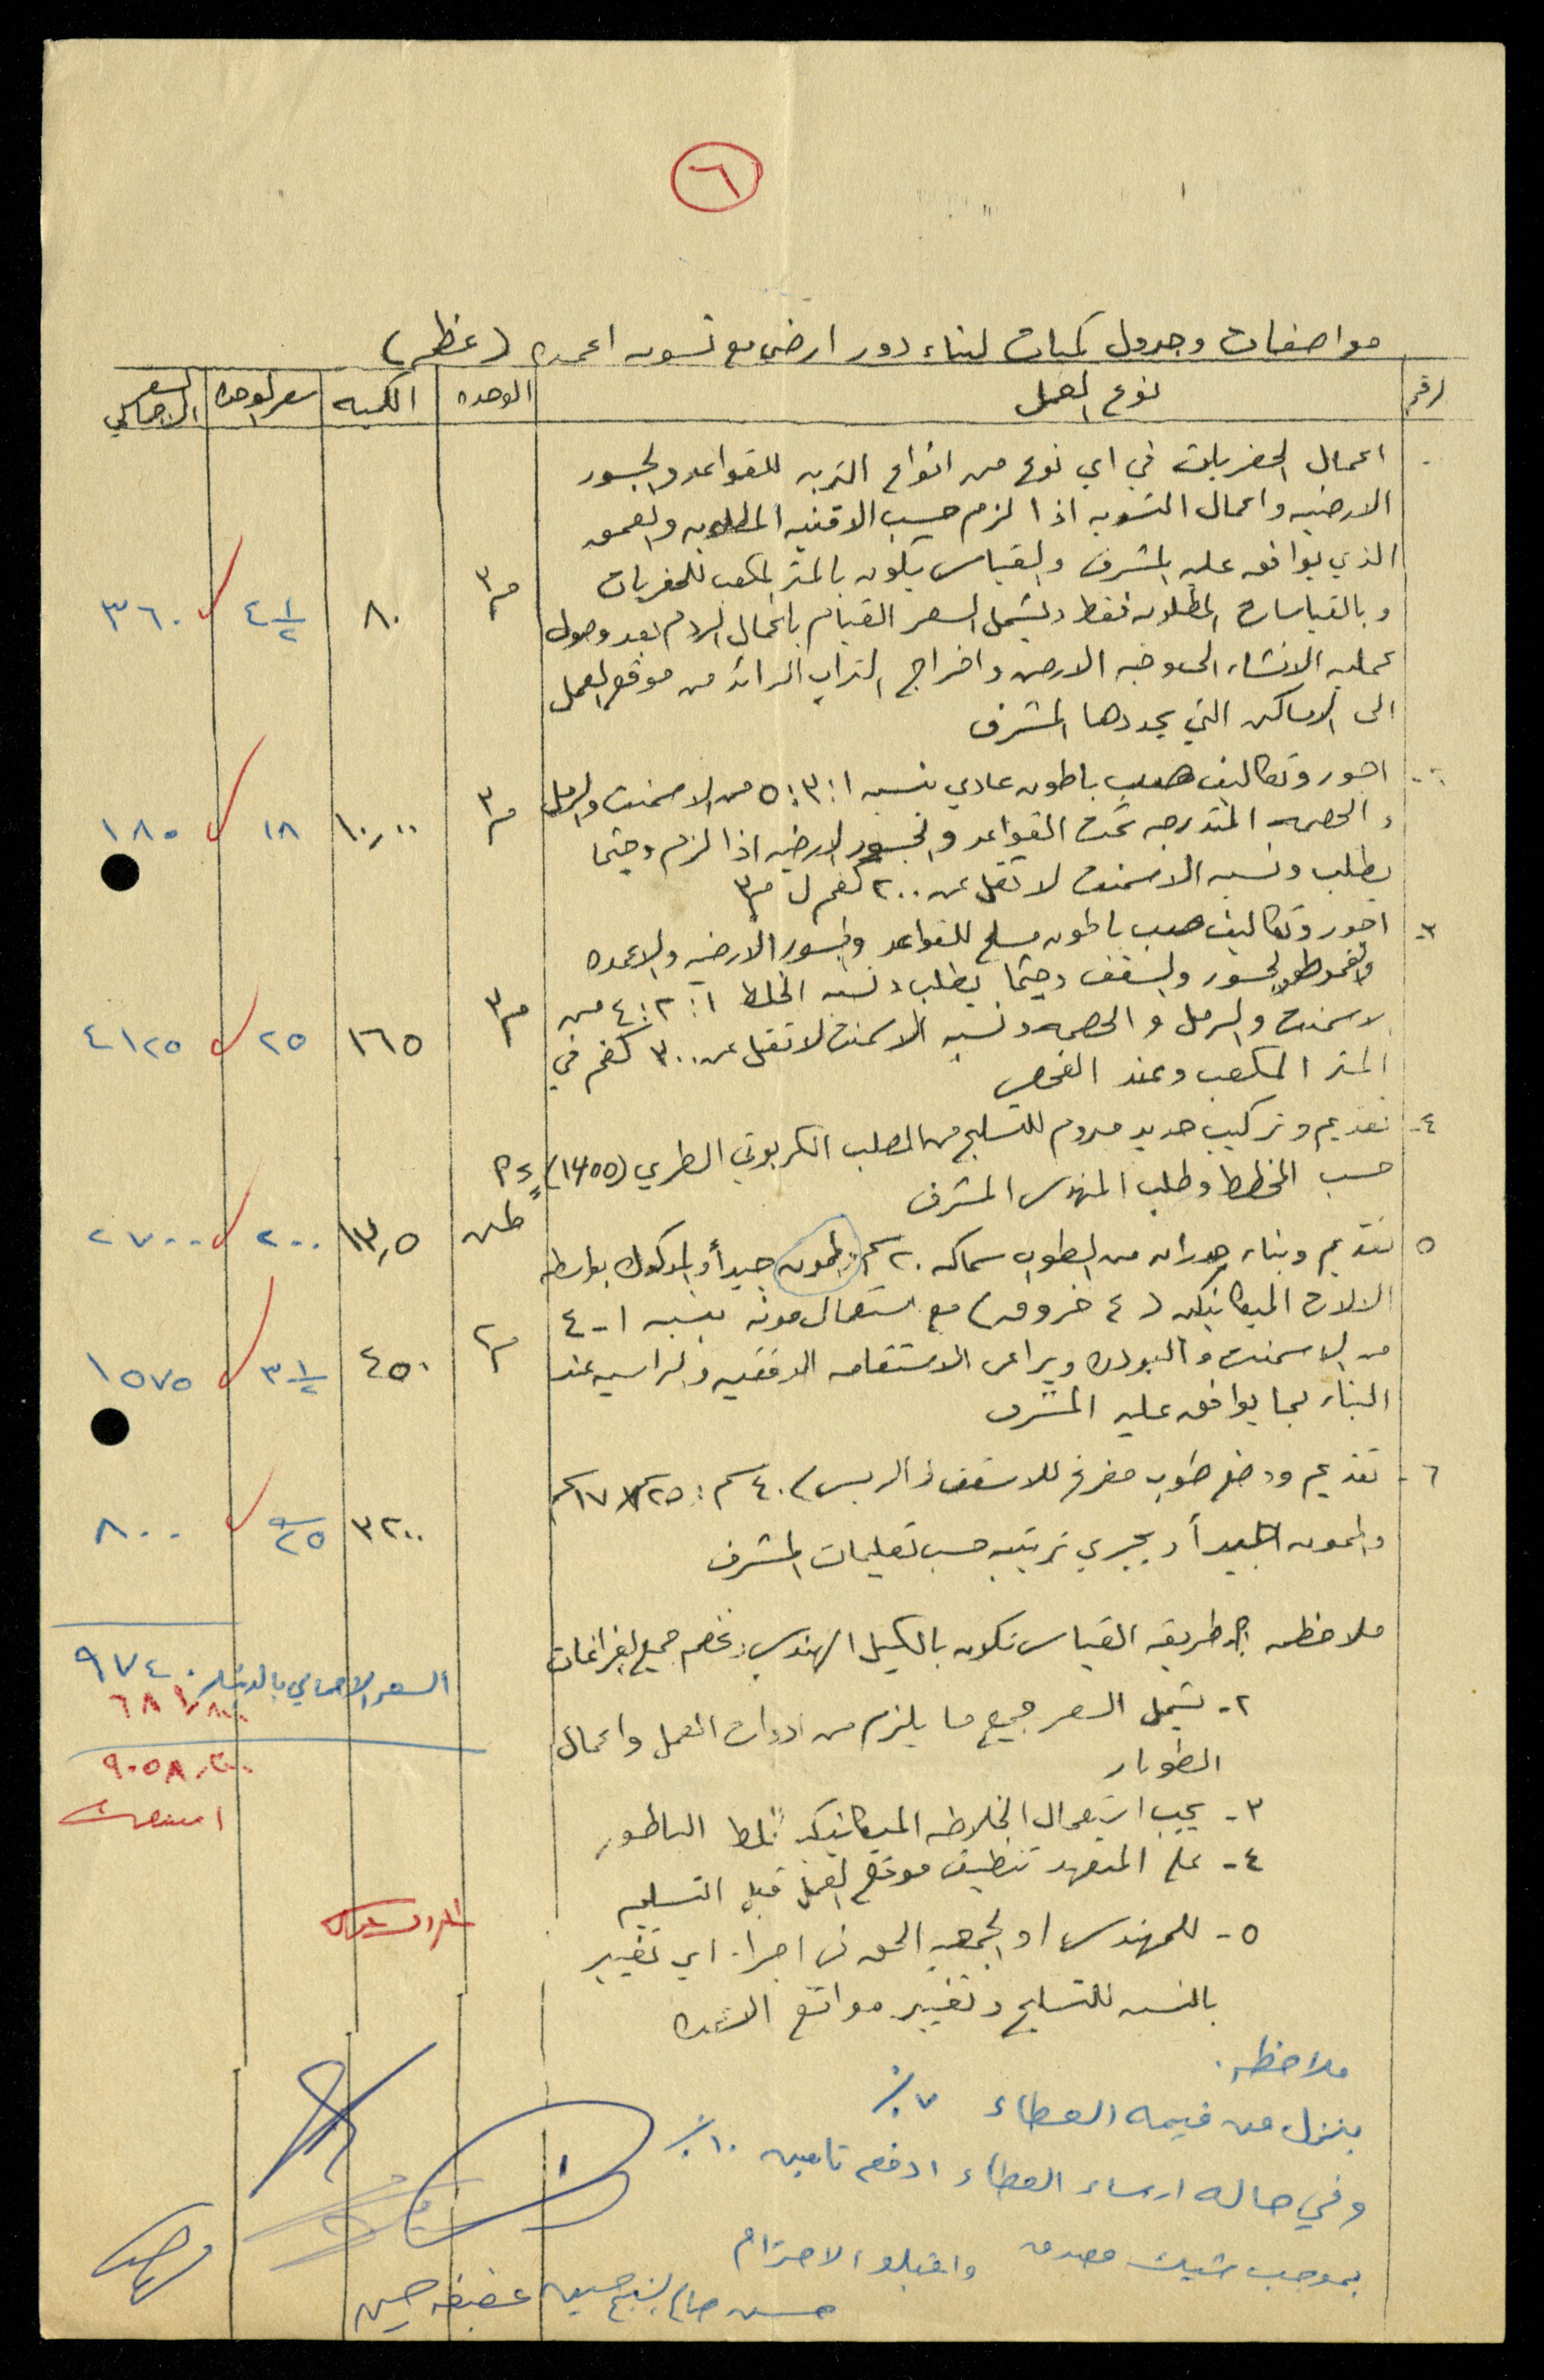 ٦
مواصفات وجدول كميات لبناء دور ارضي مع تسوية اعمدة (عظم)
رقم نوع العمل الوحدة الكمية سعر الوحدة السعر الاجمالي
اعمال الحفريات في اي نوع من انواع التربه للقواعد والجسور
الارضيه واعمال التسويه اذا لزم حسب الاقنيه المطلوبه والعمق
الذي يوافق عليه المشرف والقياس يكون بالمتر المكعب للحفريات
وبالقياسات المطلوبه فقط ويشمل السعر القيام باعمال الردم بعد وصول
عمليه الانشاء الى وجه الارض واخراج التراب الزائد من موقع العمل
الى الاماكن التي يحددها المشرف
م٣ ٨٠ ٤ ١/٢ ٣٦٠
٢- اجور وتكاليف صب باطون عادي بنسبه ١:٣:٥ من الاسمنت والرمل
والحصمه المتدرجه تحت القواعد والجسور الارضيه اذا لزم وحيثما
يطلب ونسبه الاسمنت لا تقل عن ٢٠٠ كغم ل م٣
م٣ ١٠,٠٠ ١٨ ١٨٠
٣- اجور وتكاليف صب باطون مسلح للقواعد والجسور الارضيه والاعمده
والجسور والسقف وحيثما يطلب ونسبه الخلط ١:٢:٤ من
الاسمنت والرمل والحصمه ونسبه الاسمنت لا تقل عن ٣٠٠ كغم في
المتر المكعب وعند الفحص
م٣ ١٦٥ ٢٥ ٤١٢٥
٤- تقديم وتركيب حديد مبروم للتسليح من الصلب الكربوني الطري (١٤٠٠)
حسب المخطط وطلب المهندس المشرف
طن ١٣,٥ ٢٠٠ ٢٧٠٠
٥ تقديم وبناء جدران من الطوب سماكه ٢٠ سم والمموه جيداً والمدكوك بواسطه
الالات الميكانيكيه (٤ خروق) مع استعمال مونه بنسبه ١-٤
من الاسمنت والبودره ويراعى الاستقامه الافقيه والراسيه عند
البناء بما يوافق عليه المشرف
م٢ ٤٥٠ ٣ ١/٢ ١٥٧٥
٦- تقديم ووضع طوب مفرغ للاسقف (الربس) ٤٠ سم : ٢٥سم×١٧سم
والمموه جيداً ويجري ترتيبه حسب تعليمات المشرف
٣٢٠٠ ٢٥ ٨٠٠
ملاحظه ١- طريقه القياس تكون بالكيل الهندسي وتخصم جميع الفراغات
السعر الاجمالي بالدينار ٩٧٤٠
٦٨١,٨٠٠
٢- يشمل السعر جميع ما يلزم من ادوات العمل واعمال
الطوبار
٩٠٥٨,٢٠٠
٣- يجب استعمال الخلاطه الميكانيكيه لخلط الباطون
٤- على المتعهد تنظيف موقع العمل قبل التسليم
٥- للمهندس او الجمعيه الحق في اجراء اي تغيير
بالنسبه للتسليح وتغيير مواقع الاعمده
ملاحظه.
ينزل من قيمه العطاء ٧٪
وفي حاله ارساء العطاء ادفع تامين ١٠٪
بموجب شيك مصدق واقبلو الاحترام